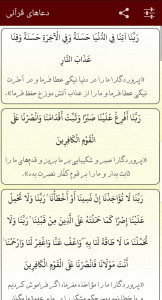 دعاهای قرآنی
رَبَّنَا آتِنَا فِي الدُّنْيَا حَسَنَةً وَفِي الْآخِرَةِ حَسَنَةً وَقِنَا
عَذَابَ النَّارِ
«پروردگارا ما را در دنیا نیکی عطا فرما و در آخرت
نیکی عطا فرما و ما را از عذاب آتش دوزخ حفظ فرما».
رَبَّنَا أَفْرِغْ عَلَيْنَا صَبْرًا وَثَبِّتْ أَقْدَامَنَا وَانْصُرْنَا عَلَى
الْقَوْمِ الْكَافِرِينَ
«پروردگارا صبر و شکیبایی بر ما بریز و قدمهای ما را
ثابت بدار و ما را بر قوم کفّار نصرت بده».
رَبَّنَا لَا تُؤَاخِذْنَا إِنْ نَسِينَا أَوْ أَخْطَأْنَا ۚ رَبَّنَا وَلَا تَحْمِلْ
عَلَيْنَا إِصْرًا كَمَا حَمَلْتَهُ عَلَى الَّذِينَ مِنْ قَبْلِنَا ۚ رَبَّنَا وَلَا
تُحَمِّلْنَا مَا لَا طَاقَةَ لَنَا بِهِ ۖ وَاعْفُ عَنَّا وَاغْفِرْ لَنَا وَارْحَمْنَا ۚ
أَنْتَ مَوْلَانَا فَانْصُرْنَا عَلَى الْقَوْمِ الْكَافِرِينَ
«پروردگارا ما را مؤاخذه مفرما، اگر فراموش کردیم